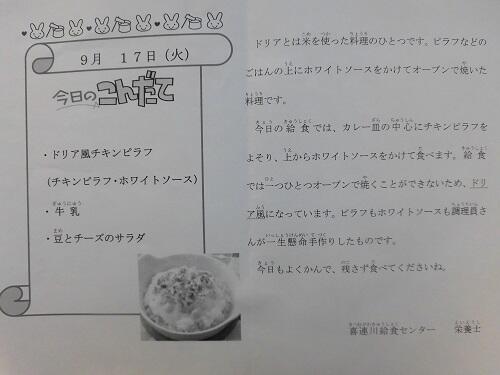 9月　17日（火）
今日のこんだて
・ドリア風チキンピラフ
（チキンピラフ・ホワイトソース）
・牛乳
・豆とチーズのサラダ
ドリアとは米を使った料理のひとつです。ピラフなどの
ごはんの上にホワイトソースをかけてオーブンで焼いた
料理です。
今日の給食では、カレー皿の中心にチキンピラフを
よそり、上からホワイトソースをかけて食べます。給食
では一つひとつオーブンで焼くことができないため、ドリ
ア風になっています。ピラフもホワイトソースも調理員さ
んが一生懸命手作りしたものです。
今日もよくかんで、残さず食べてくださいね。
喜連川給食センター　栄養士